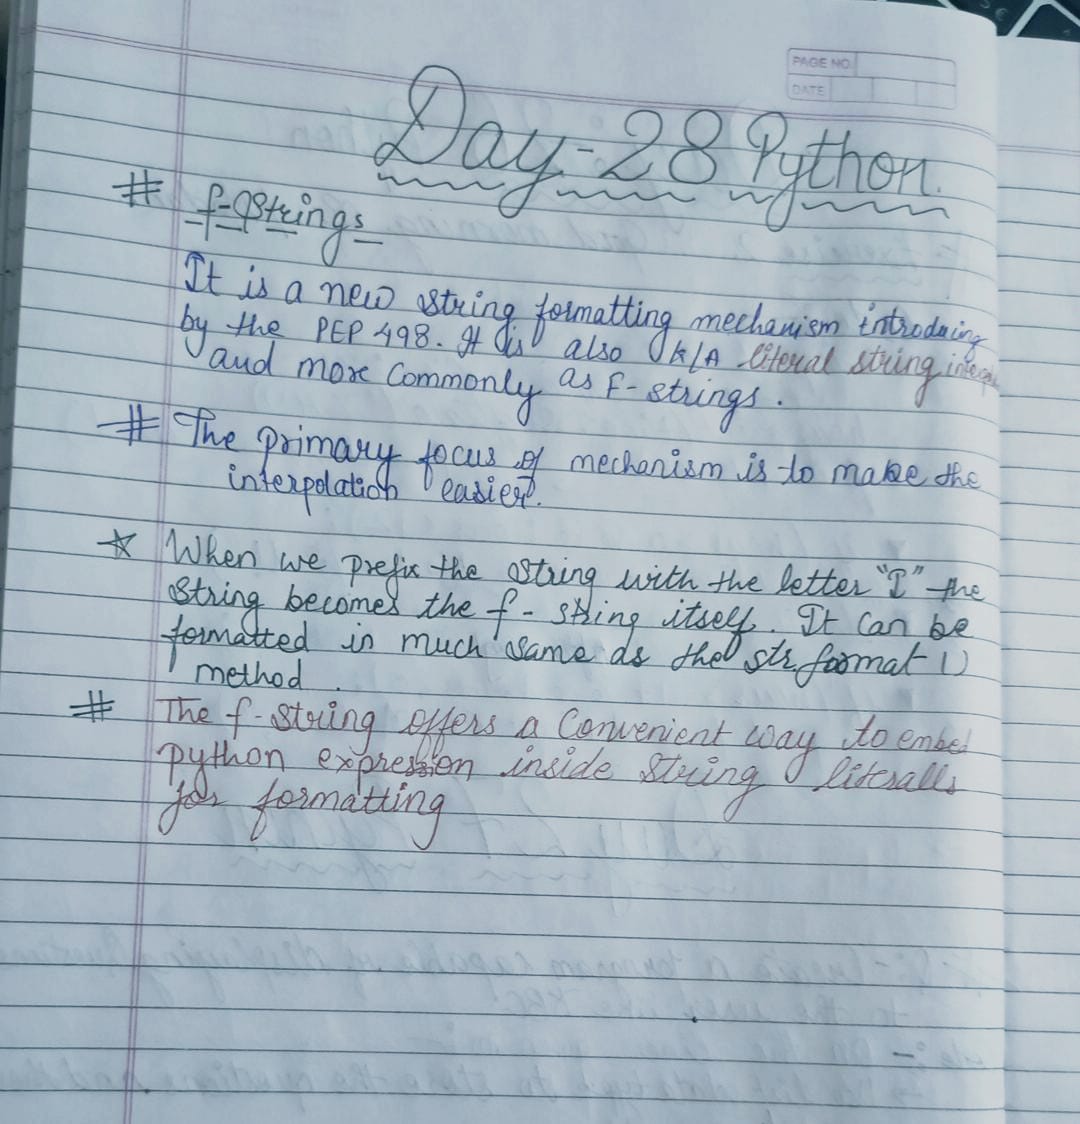 PAGE NO.
DATE
Day-28 Python.
# f-Strings
It is a new string formatting mechanism introducing
by the PEP 498. It is also k/A literal string
and more commonly as F-strings.
# The primary focus of mechanism is to make the
interpolation easier.
☆ When we prefix the string with the letter "I" the
string becomes the f-string itself. It can be
formatted in much same as the str.format ()
method.
# The f-string offers a convenient way to embed
python expression inside string literalls
for formatting